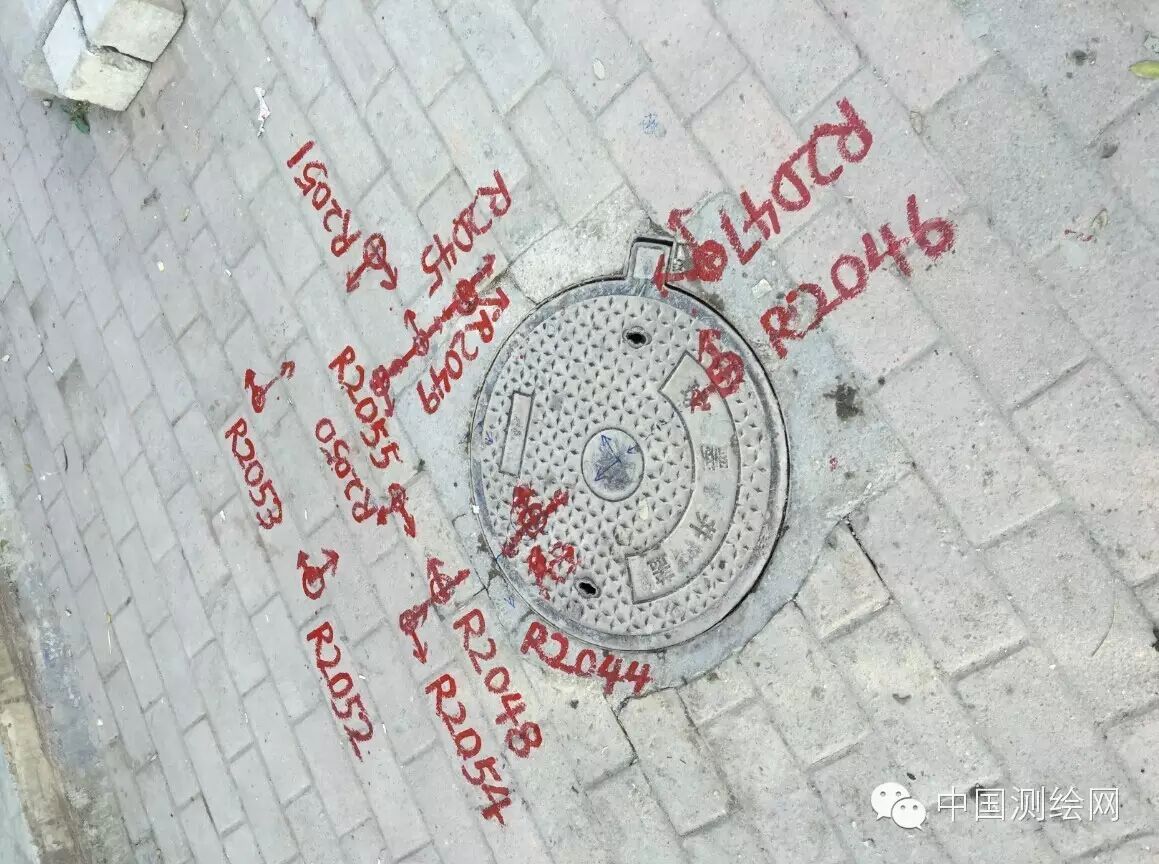 R2051
R2045
R2047
R2046
R2049
R2055
R2050
R2053
R2044
R2048
R2052
R2054
中国测绘网